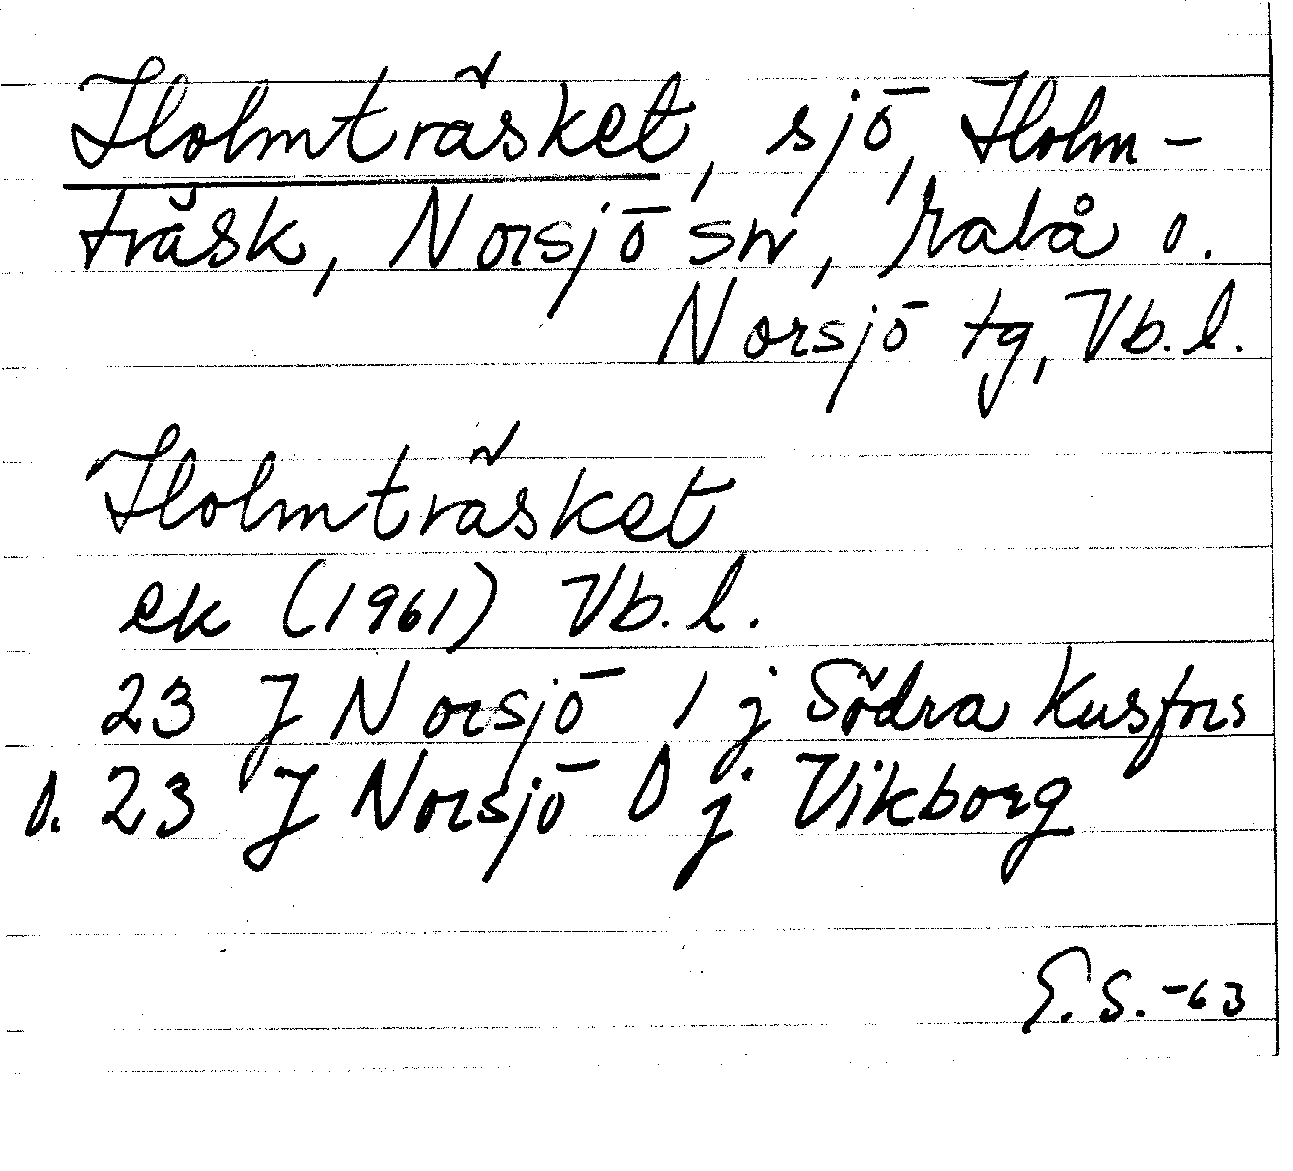 Holmträsket, sjö, Holm-
träsk, Norsjö sn, Malå o.
Norsjö tg, Vb.l.
Holmträsket
ek (1961) Vb.l.
23 J Norsjö 1 j Södra Kusfors
o. 23 J Norsjö 0 j Vikborg
G.S.-63